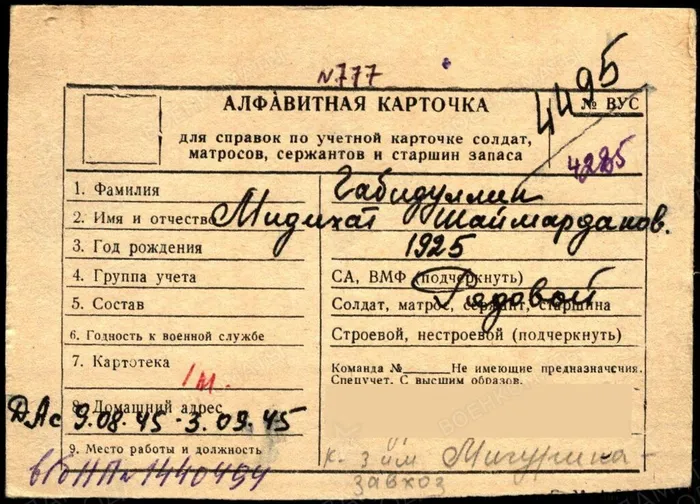 №777
4495
АЛФАВИТНАЯ КАРТОЧКА
№ ВУС
для справок по учетной карточке солдат,
матросов, сержантов и старшин запаса
4285
1. Фамилия Габидуллин
2. Имя и отчество Мидихат Шаймарданов.
3. Год рождения 1925
4. Группа учета СА, ВМФ (подчеркнуть)
5. Состав Рядовой Солдат, матрос, сержант, старшина
6. Годность к военной службе Строевой, нестроевой (подчеркнуть)
7. Картотека Команда № Не имеющие предназначения.
1м. Спецучет. С высшим образов.
8. Домашний адрес
ДАс 9.08.45-3.09.45
9. Место работы и должность к-з им Мичурина-
завхоз